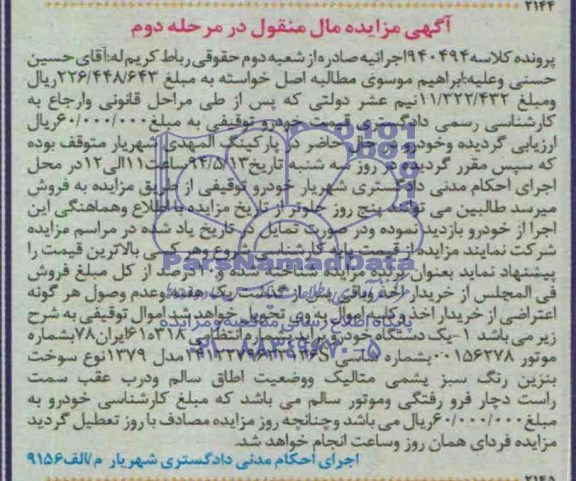 ۲۱۴۴
آگهی مزایده مال منقول در مرحله دوم
پرونده کلاسه ۹۴۰۴۹۴اجرائیه صادره از شعبه دوم حقوقی رباط کریم له:آقای حسین
حسنی وعلیه:ابراهیم موسوی مطالبه اصل خواسته به مبلغ ۲۲۶/۴۴۸/۶۴۳ریال
ومبلغ ۱۱/۳۲۲/۴۳۲نیم عشر دولتی که پس از طی مراحل قانونی وارجاع به
کارشناسی رسمی دادگستری قیمت خودرو توقیفی به مبلغ ۶۰/۰۰۰/۰۰۰ریال
ارزیابی گردیده وخودرو در حال حاضر در پارکینگ المهدی شهریار متوقف بوده
که سپس مقرر گردیده در روز سه شنبه تاریخ ۹۴/۵/۱۳ساعت۱۱الی۱۲در محل
اجرای احکام مدنی دادگستری شهریار خودرو توقیفی از طریق مزایده به فروش
میرسد طالبین می توانند پنج روز جلوتر از تاریخ مزایده با اطلاع وهماهنگی این
اجرا از خودرو بازدید نموده ودر صورت تمایل در تاریخ یاد شده در مراسم مزایده
شرکت نمایند مزایده از قیمت پایه کارشناسی شروع وهر کسی بالاترین قیمت را
پیشنهاد نماید بعنوان برنده مزایده شناخته شده و ۱۰درصد از کل مبلغ فروش
فی المجلس از خریدار اخذ وباقی پس از گذشت یک هفته وعدم وصول هر گونه
اعتراضی از خریدار اخذ وکلیه اموال به وی تحویل خواهد شد اموال توقیفی به شرح
زیر می باشد ۱-یک دستگاه خودرو پراید بشماره انتظامی ۳۱۸ه۶۱ایران۷۸بشماره
موتور ۰۰۱۵۶۲۷۸بشماره شاسی مدل ۱۳۷۹نوع سوخت
بنزین رنگ سبز یشمی متالیک ووضعیت اطاق سالم ودرب عقب سمت
راست دچار فرو رفتگی وموتور سالم می باشد که مبلغ کارشناسی خودرو به
مبلغ ۶۰/۰۰۰/۰۰۰ریال می باشد وچنانچه روز مزایده مصادف با روز تعطیل گردید
مزایده فردای همان روز وساعت انجام خواهد شد.
اجرای احکام مدنی دادگستری شهریار م/الف۹۱۵۶
ParsNamadData
پایگاه اطلاع رسانی مناقصه و مزایده
۲۱۴۵